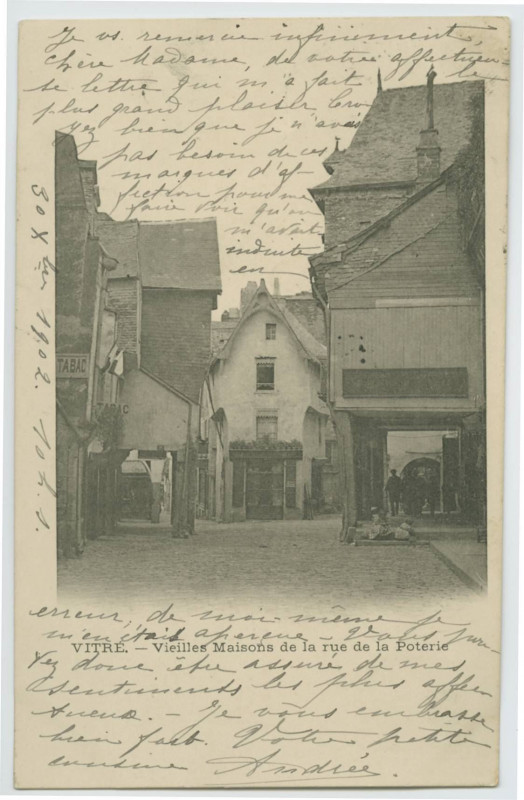 Je vs. remercie infiniment,
chère Madame, de votre affectueu-
se lettre qui m'a fait le
plus grand plaisir Cro
yez bien que je n'avais
pas besoin de ces
marques d'af-
fection pour me
faire voir qu'on
m'avait
induite
en
30 Xbre 1902. 10 h. s.
TABAC
TABAC
erreur, de moi-même je
m'en étais aperçue - Vous pou-
VITRÉ. — Vieilles Maisons de la rue de la Poterie
vez donc être assuré de mes
sentiments les plus affec
tueux. - Je vous embrasse
bien fort. Votre petite
cousine Andrée.